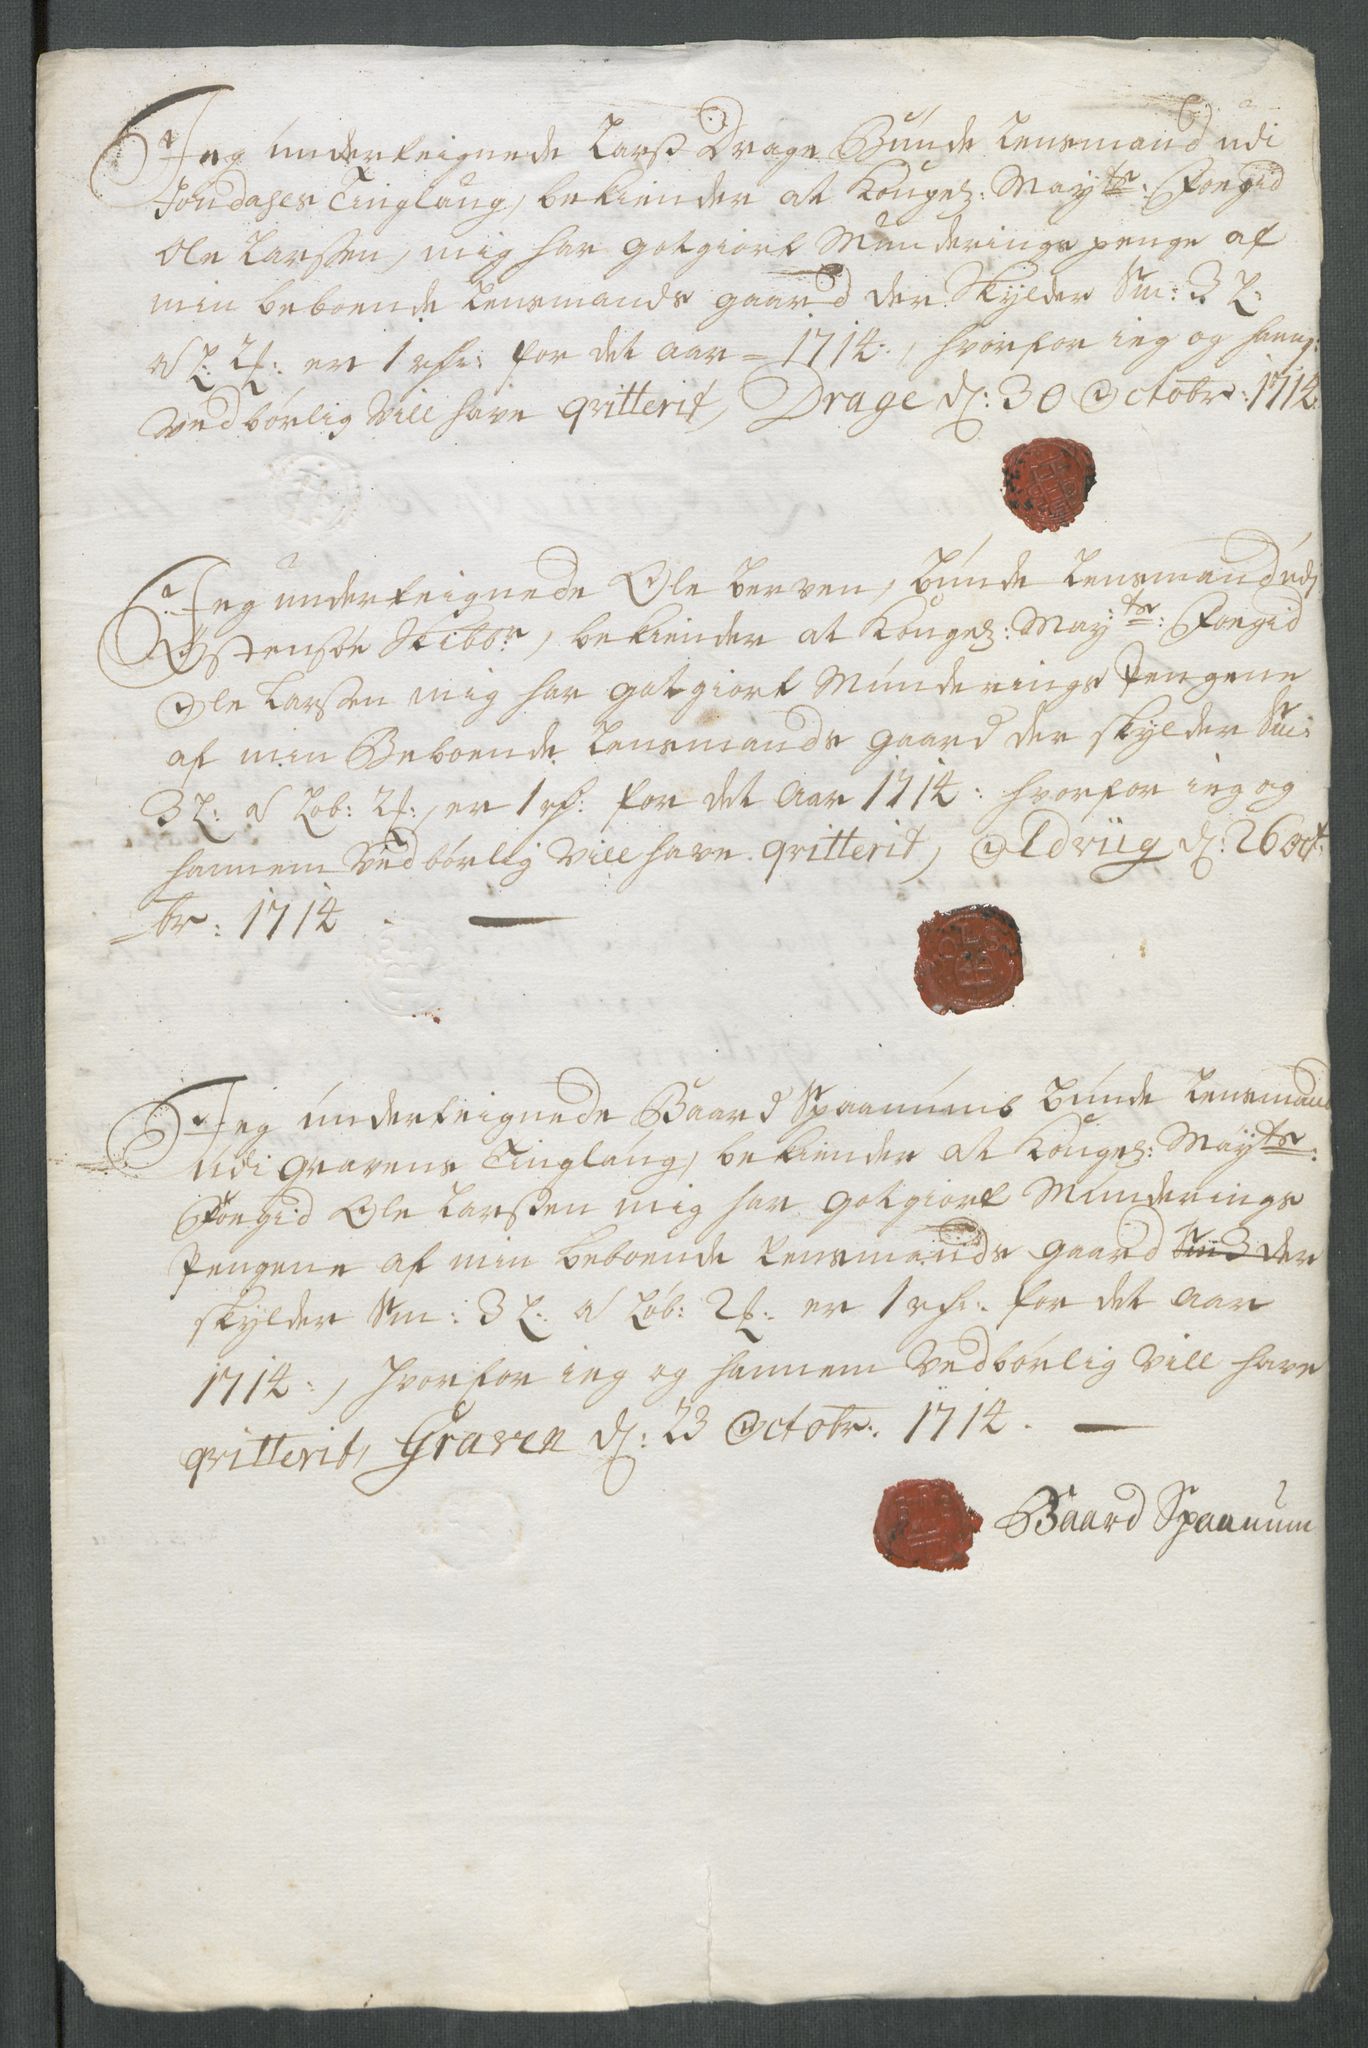 Jeg underteignede Larss Drage Bunde Lensmand udi
Jondahls Tinglaug, bekiender at Kongel: May:ts Foegid
Ole Larssen, mig har gotgiort Munderings penge af
min beboende Lensmands gaard der Skylder Sm: 3 L:
a L: 2 : er 1 rdr: for det aar 1714:, hvorfor ieg og hannem:
vedbørlig vill have qvitterit, Drage d: 30 Octobr: 1714
Jeg underteignede Ole Berven, Bunde Lensmand udj
Østensøe Skibbr, bekiender at Kongel: May:ts: Foegid
Ole Larssen mig har gotgiort Munderings Pengene
af min Beboende Lensmands gaard der skylder Sm:
3 L: a Løb: 2 :, er 1 rdr: for det Aar 1714: hvorfor ieg og
hannem vedbørlig vill have qvitterit, d: 26 oct
=br: 1714
OL
Jeg underteignede Baard Spaanums Bunde Lensmand
udi Gravens Tinglaug, bekiender at Kongel: May:ts:
Foegid Ole Larssen mig har gotgiort Munderings
Pengene af min beboende Lensmands gaard Sm 3 der
skylder Sm: 3 L: a Løb: 2 : er 1 rdr: for det aar
1714:, hvorfor ieg og hannem vedbørlig vill have
qvitterit, Graven d: 23 Octobr: 1714.
Baard Spaanum